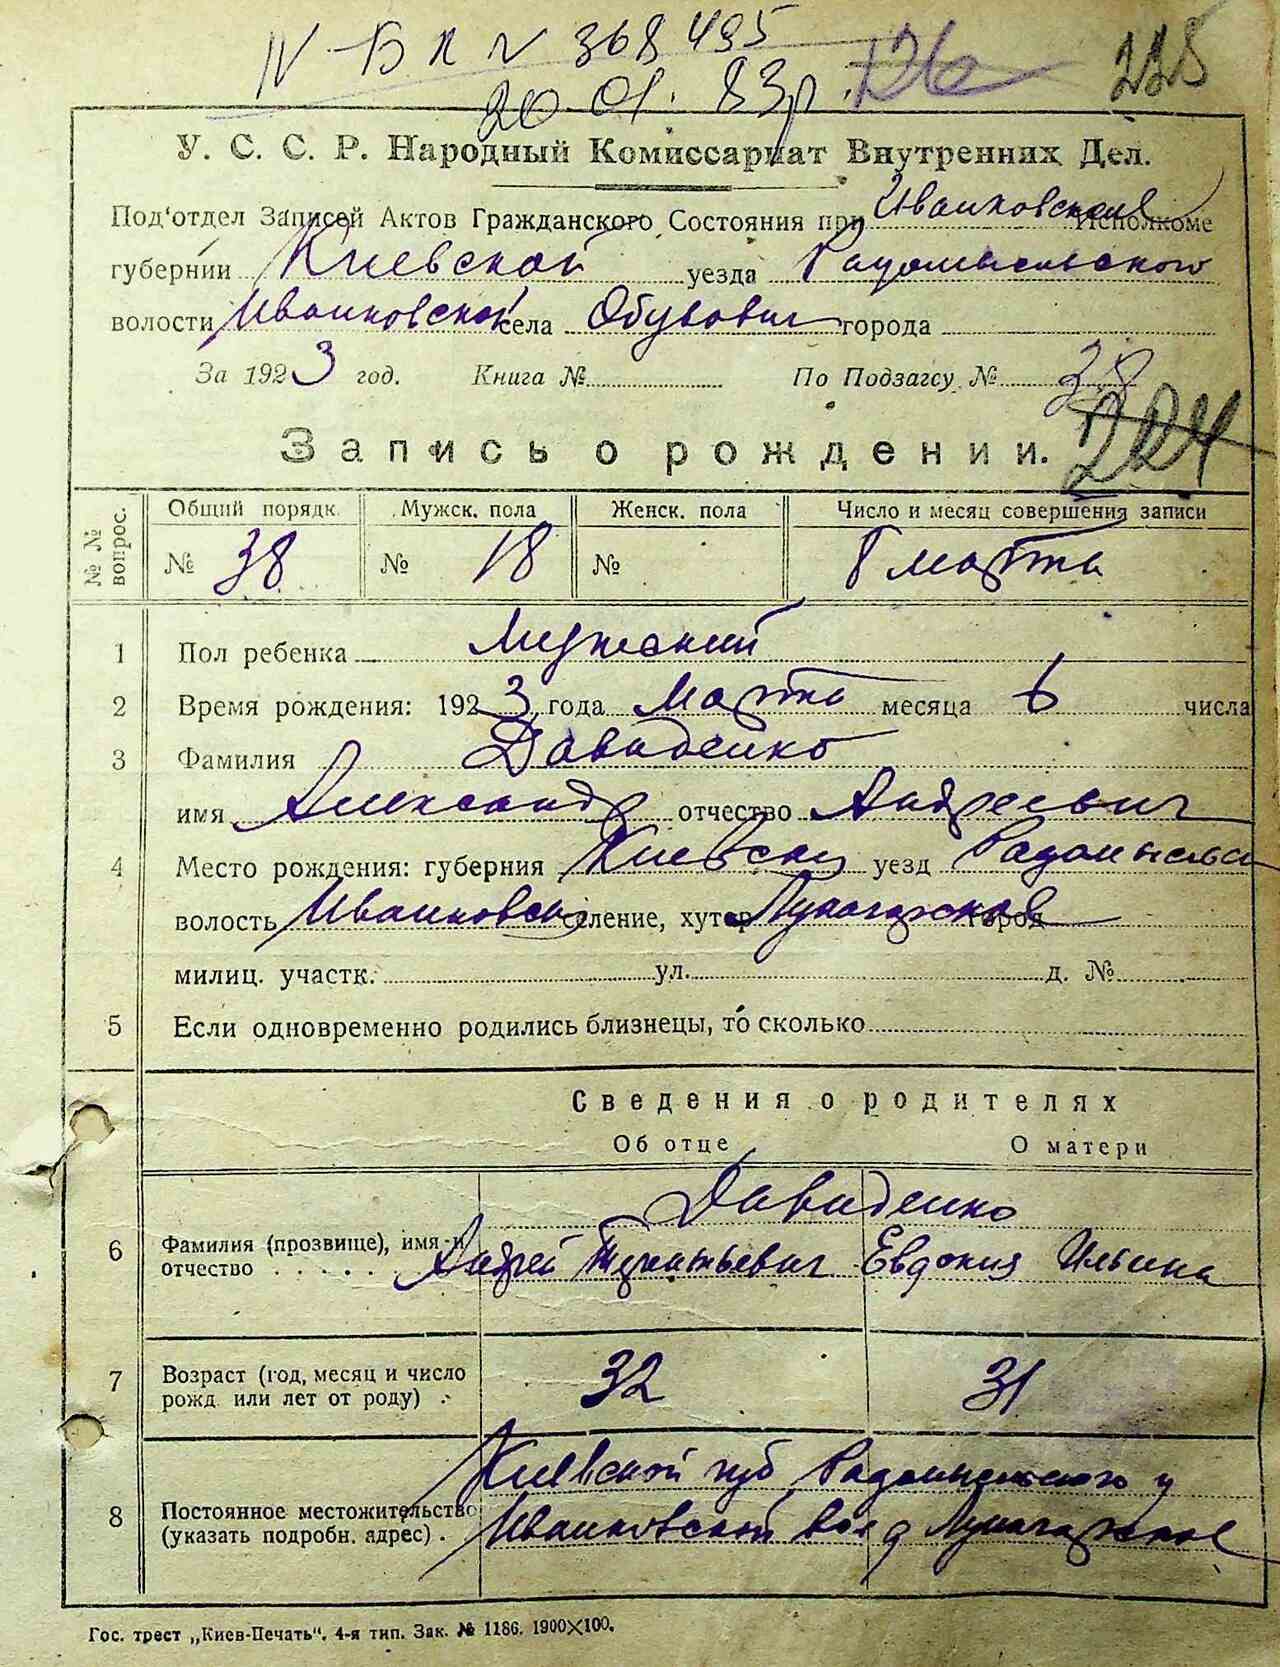 IV-БК № 368495
20.01.83р. 126 225
У. С. С. Р. Народный Комиссариат Внутренних Дел.
Под‘отдел Записей Актов Гражданского Состояния при Иванковском Исполкоме
губернии Киевской уезда Радомысльского
волости Иванковской села Обуховичи города
За 1923 год. Книга № По Подзагсу № 38
Запись о рождении. 224
№ № вопрос. Общий порядк. Мужск. пола Женск. пола Число и месяц совершения записи
№ 38 № 18 № 8 марта
1 Пол ребенка Мужеский
2 Время рождения: 1923 года Марта месяца 6 числа
3 Фамилия Давиденко
имя Александр отчество Андреевич
4 Место рождения: губерния Киевск уезд Радомысльс
волость Иванковск селение, хутор город
милиц. участк. ул. д. №
5 Если одновременно родились близнецы, то сколько
Сведения о родителях
Об отце О матери
Давиденко
6 Фамилия (прозвище), имя и отчество . . . . . Андрей Терентьевич Евдокия Ильина
7 Возраст (год, месяц и число рожд или лет от роду) . 32 31
Киевской губ Радомысльского у
8 Постоянное местожительство (указать подробн. адрес) . Иванковской вол д
Гос. трест „Киев-Печать“. 4-я тип. Зак. № 1186. 1900×100.